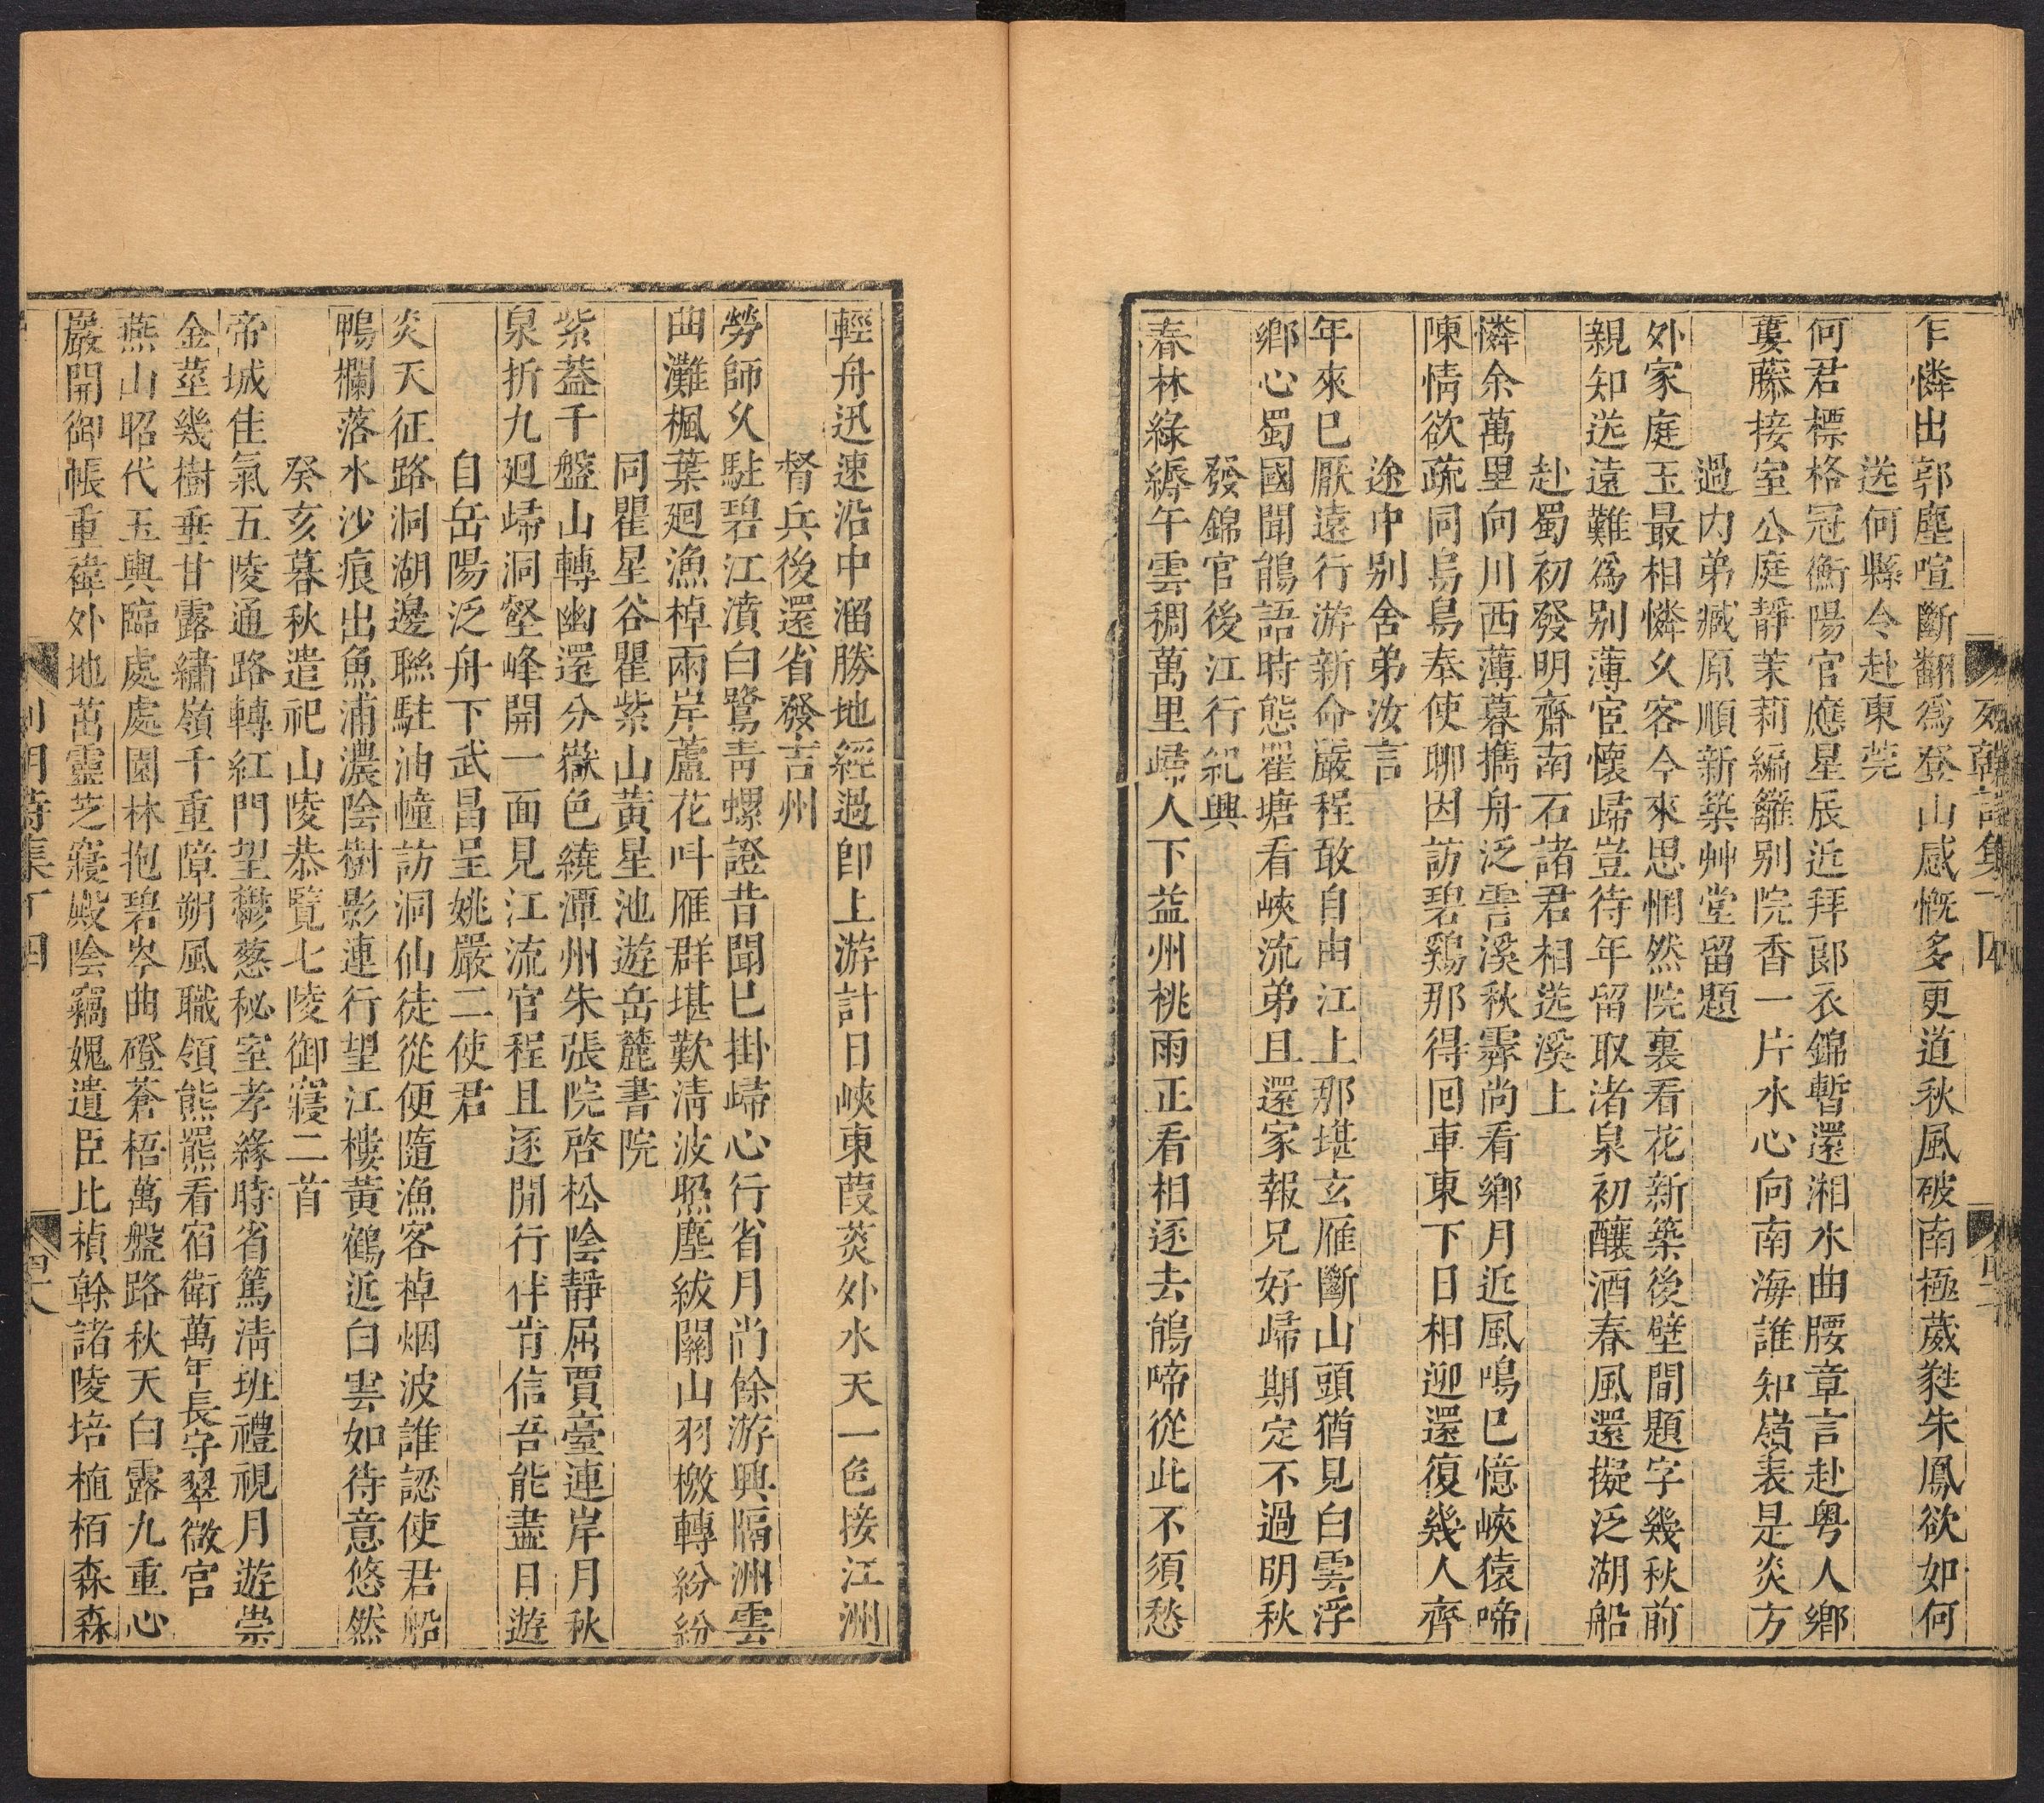 乍憐出郭塵喧斷翻爲登山感慨多更道秋風破南極葳蕤朱鳳欲如何
送何縣令赴東莞
何君標格冠衡陽官應星辰近拜郎衣錦暫還湘水曲腰章言赴粤人鄉
蔞藤接室公庭靜茉莉編籬別院香一片水心向南海誰知嶺表是炎方
過内弟臧原順新築艸堂留題
外家庭玉最相憐久客今來思惘然院裏看花新築後壁間題字幾秋前
親知送遠難爲别薄宦懷歸豈待年留取渚泉初釀酒春風還擬泛湖船
赴蜀初發明齋南石諸君相送溪上
憐余萬里向川西薄暮攜舟泛霅溪秋霽尚看鄉月近風鳴已憶峽猿啼
陳情欲疏同烏鳥奉使聊因訪碧鷄那得回車東下日相迎還復幾人齊
途中别舍弟汝言
年來已厭遠行游新命嚴程敢自由江上那堪玄雁斷山頭猶見白雲浮
鄉心蜀國聞鵑語時態瞿塘看峽流弟且還家報兄好歸期定不過明秋
發錦官後江行紀興
春林綠縟午雲稠萬里歸人下益州桃雨正看相逐去鵑啼從此不須愁
輕舟迅速沿中溜勝地經過卽上游計日峽東葭菼外水天一色接江洲
督兵後還省發吉州
勞師久駐碧江濆白鷺靑螺證昔聞已掛歸心行省月尚餘游興隔洲雲
曲灘楓葉廻漁棹兩岸蘆花叫雁群堪歎淸波照塵紱關山羽檄轉紛紛
同瞿星谷瞿紫山黃星池遊岳麓書院
紫葢千盤山轉幽還分嶽色繞潭州朱張院啓松陰靜屈賈臺連岸月秋
泉折九廻歸洞壑峰開一面見江流官程且逐開行伴肯信吾能盡日遊
自岳陽泛舟下武昌呈姚嚴二使君
炎天征路洞湖邊聯駐油幢訪洞仙徒從便隨漁客棹烟波誰認使君船
鴨欄落水沙痕出魚浦濃陰樹影連行望江樓黄鶴近白雲如待意悠然
癸亥暮秋遣祀山陵恭覽七陵御寢二首
帝城佳氣五陵通路轉紅門望鬱葱秘室孝緣時省篤淸班禮視月遊崇
金莖幾樹垂甘露繡嶺千重障朔風職領熊羆看宿衛萬年長守翠微宫
燕山昭代玉輿臨處處園林抱碧岑曲磴蒼梧萬盤路秋天白露九重心
嚴開御帳重褘外地茁靈芝寢殿陰竊媿遺臣比楨榦諸陵培植栢森森